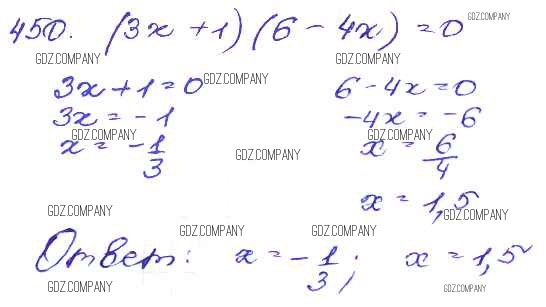 450. (3x + 1)(6 - 4x) = 0
GDZ.COMPANY
GDZ.COMPANY GDZ.COMPANY
3x + 1 = 0 GDZ.COMPANY 6 - 4x = 0
3x = - 1 -4x = -6
GDZ.COMPANY GDZ.COMPANY
x = - 1/3 x = 6/4
GDZ.COMPANY
x = 1,5
GDZ.COMPANY GDZ.COMPANY
GDZ.COMPANY GDZ.COMPANY
Ответ: x = - 1/3; x = 1,5
GDZ.COMPANY GDZ.COMPANY